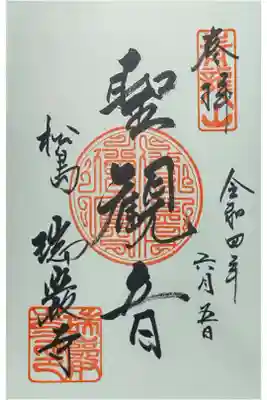 奉拝
令和四年
六月五日
聖観音
松島
瑞巌寺